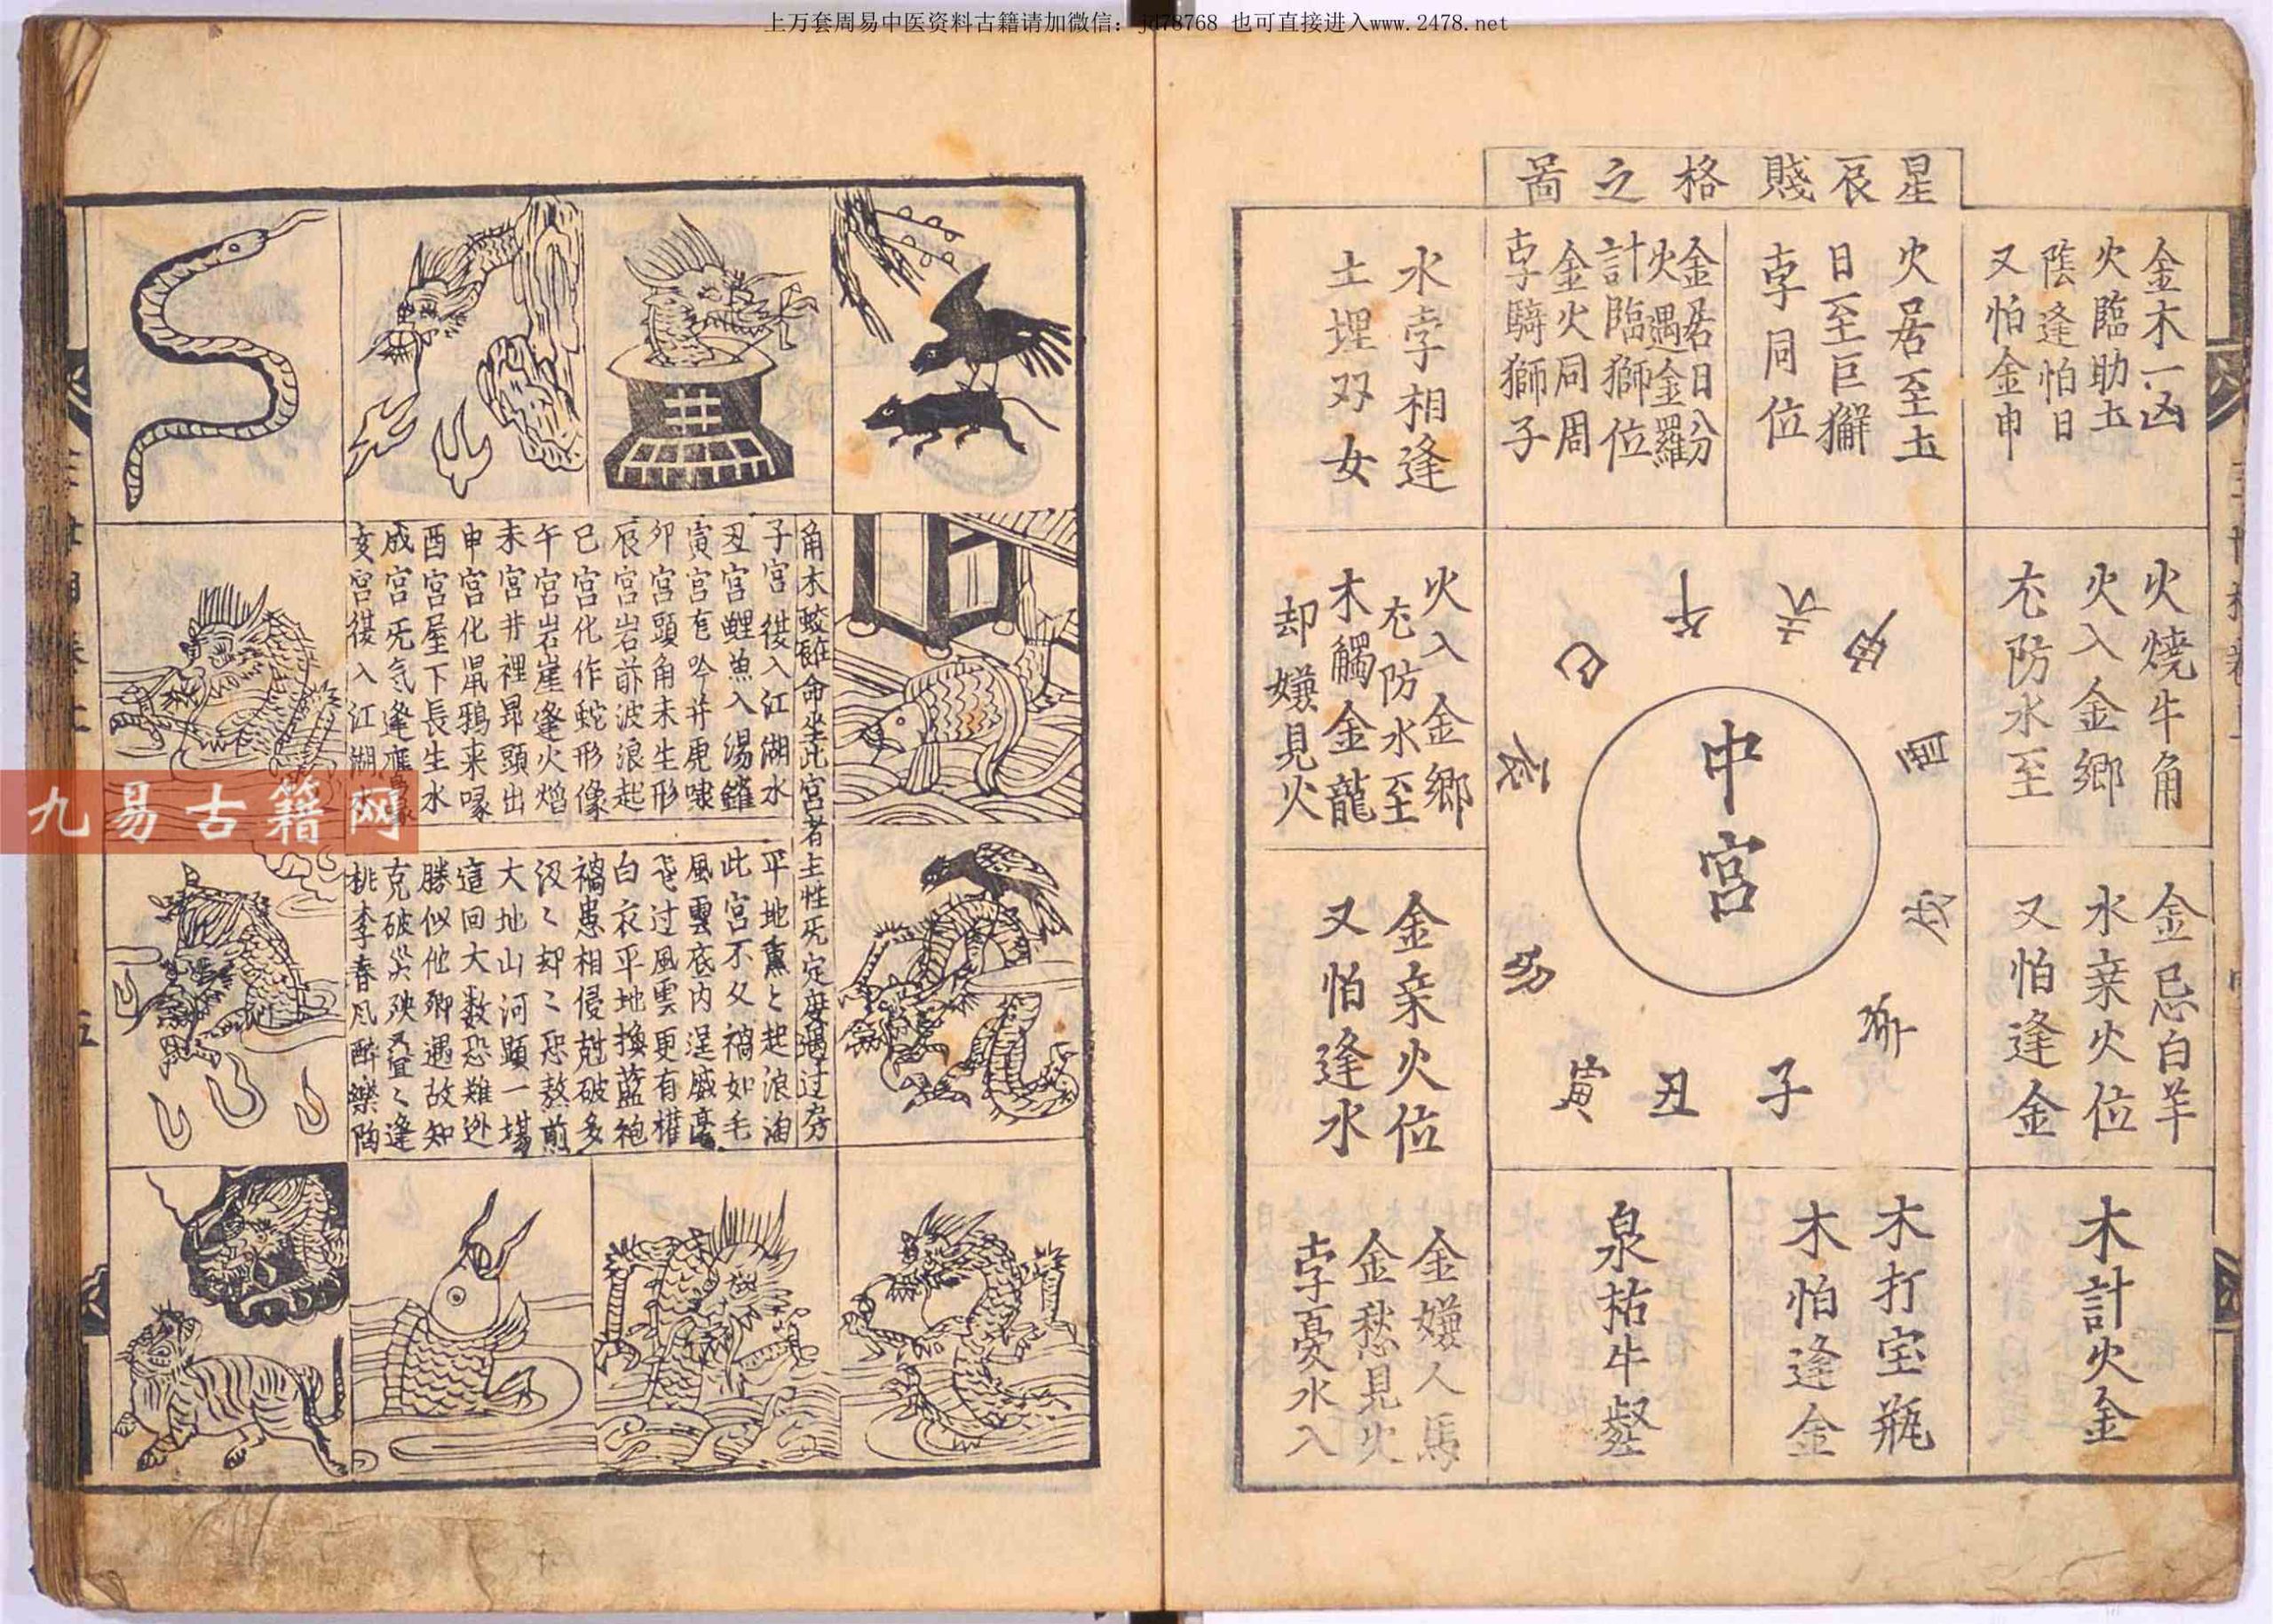 上万套周易中医资料古籍请加微信：jd78768 也可直接进入www.2478.net
星辰賤格之啚
金木一凶
火臨助土
陰逢怕日
又怕金申
火居至土
日至巨獬
孛同位
金居日分
火遇金羅
計臨獅位
金火同周
孛騎獅子
水孛相逢
土埋双女
火燒牛角
火入金鄉
冘防水至
火入金鄉
冘防水至
木觸金龍
却嫌見火
金忌白羊
水亲火位
又怕逢金
金亲火位
又怕逢水
木計火金
木打宝瓶
木怕逢金
泉祐牛
金嫌人馬
金愁見火
孛憂水入
中宮
子
丑
寅
卯
辰
巳
午
未
申
酉
戌
亥
角木蛟 命坐此宮者主性旡定度遇过房
子宮 入江湖水
丑宮鯉魚入湯鑵
寅宮 吟并虎嘯
卯宮頭角未生形
辰宮岩前波浪起
巳宮化作蛇形像
午宮岩崖逢火熖
未宮井裡昻頭出
申宮化鼡鴉来啄
酉宮屋下長生水
戌宮旡氣逢鷹
亥宮 入江湖
平地 起浪淘
此宮不久禍如毛
風雲底内逞威毫
飞过風雲更有權
白衣平地換藍袍
禍患相侵尅破多
汲〻却〻恐熬煎
大地山河顕一場
這回大数恐難迯
勝似他鄉遇故知
克破災殃疊〻逢
桃李春风醉樂陶
五
九易古籍网